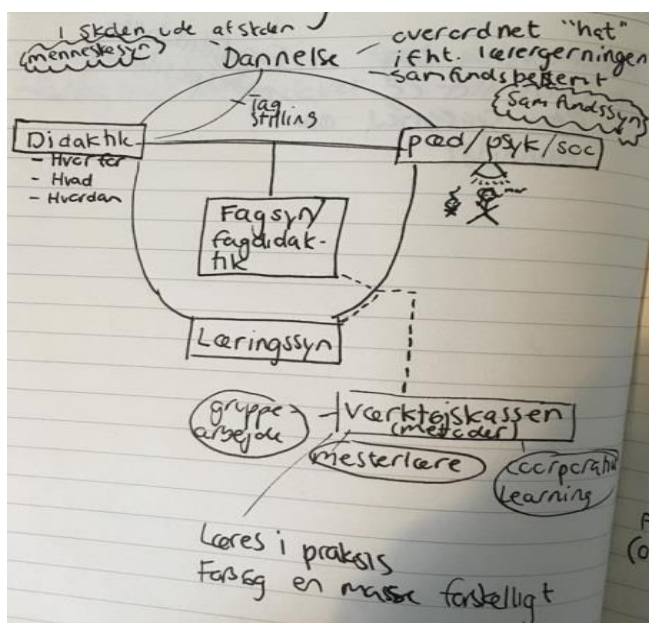 I skolen ude af skolen
menneskesyn
Dannelse
overordnet "hat"
ifht. lærergerningen
- samfundsbestemt
Samfundssyn
- Tag
stilling
Didaktik
- Hvorfor
- Hvad
- Hvordan
pæd/psyk/soc
Fagsyn/
fagdidak-
tik
Læringssyn
gruppe
arbejde
Værktøjskassen
(metoder)
mesterlære
cooperativ
Learning
Læres i praksis
Forsøg en masse forskelligt